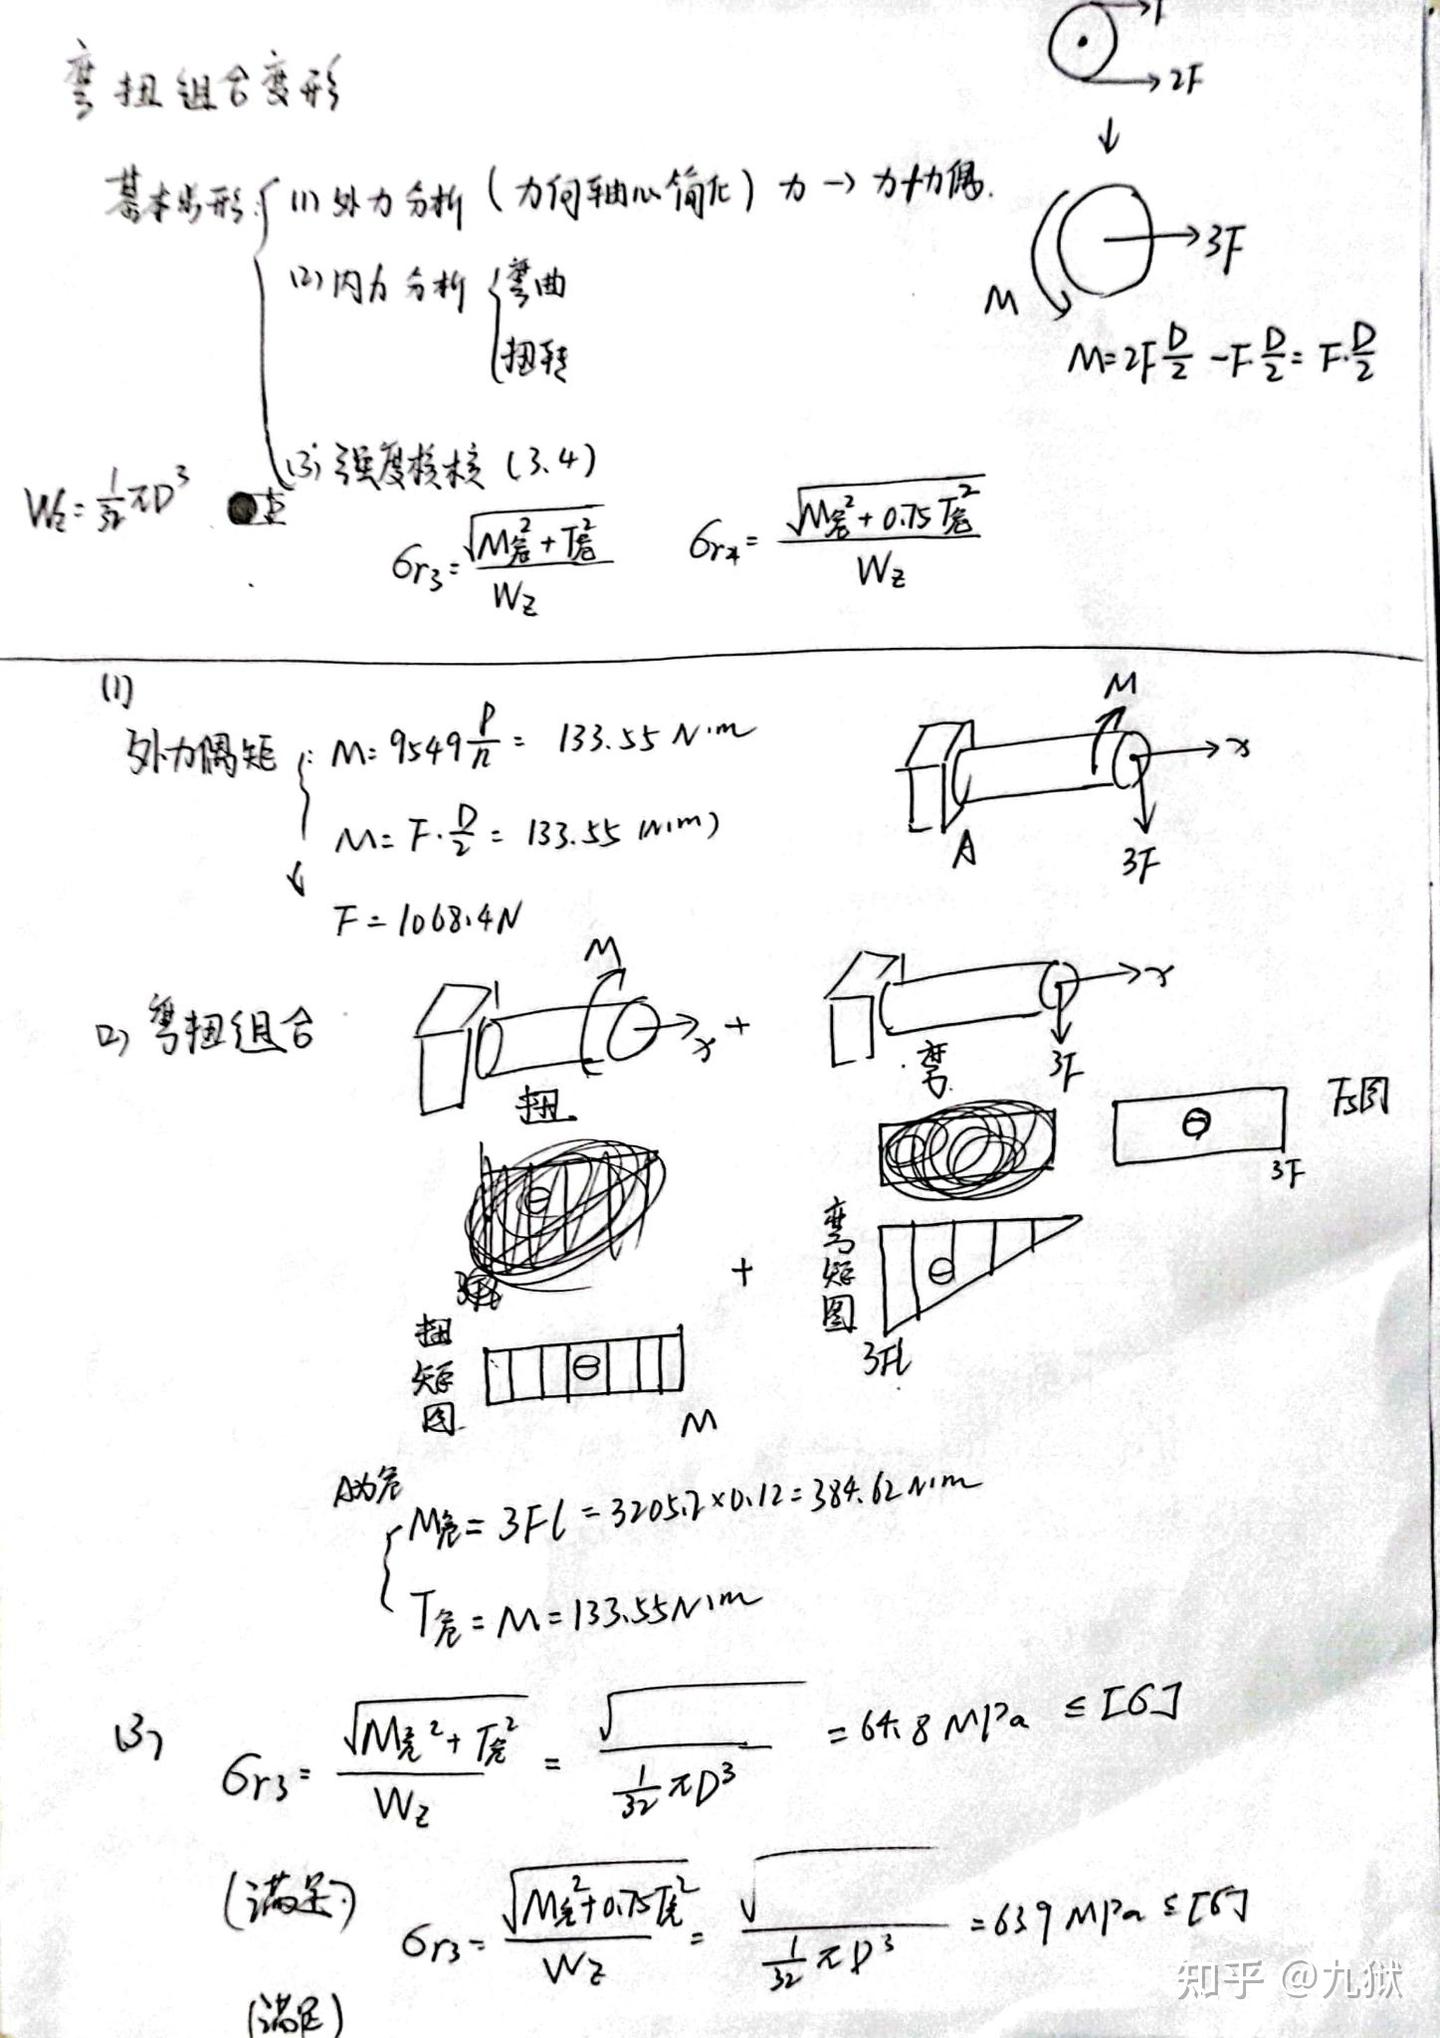 弯扭组合变形
F
2F
基本步形: (1) 外力分析 (力向轴心简化) 力 → 力+力偶.
3F
M
(2) 内力分析 弯曲
扭转
M=2F D/2 - F·D/2 = F·D/2
(3) 强度校核 (3.4)
Wz = 1/32 πD³
σr3 = √(M危² + T危²) / Wz
σr4 = √(M危² + 0.75T危²) / Wz
(1)
外力偶矩: M = 9549 P/n = 133.55 N·m
M = F·D/2 = 133.55 (N·m)
F = 1068.4N
M
x
A
3F
(2) 弯扭组合
M
x
+
x
3F
扭
弯
Fs图
⊖
3F
弯矩图
⊖
3Fl
+
扭矩图
⊖
M
A为危
M危 = 3Fl = 3205.2×0.12 = 384.62 N·m
T危 = M = 133.55 N·m
(3)
σr3 = √(M危² + T危²) / Wz = √ / (1/32 πD³) = 64.8 MPa ≤ [σ]
(满足)
σr3 = √(M危² + 0.75T危²) / Wz = √ / (1/32 πD³) = 63.9 MPa ≤ [σ]
(满足)
知乎 @九狱